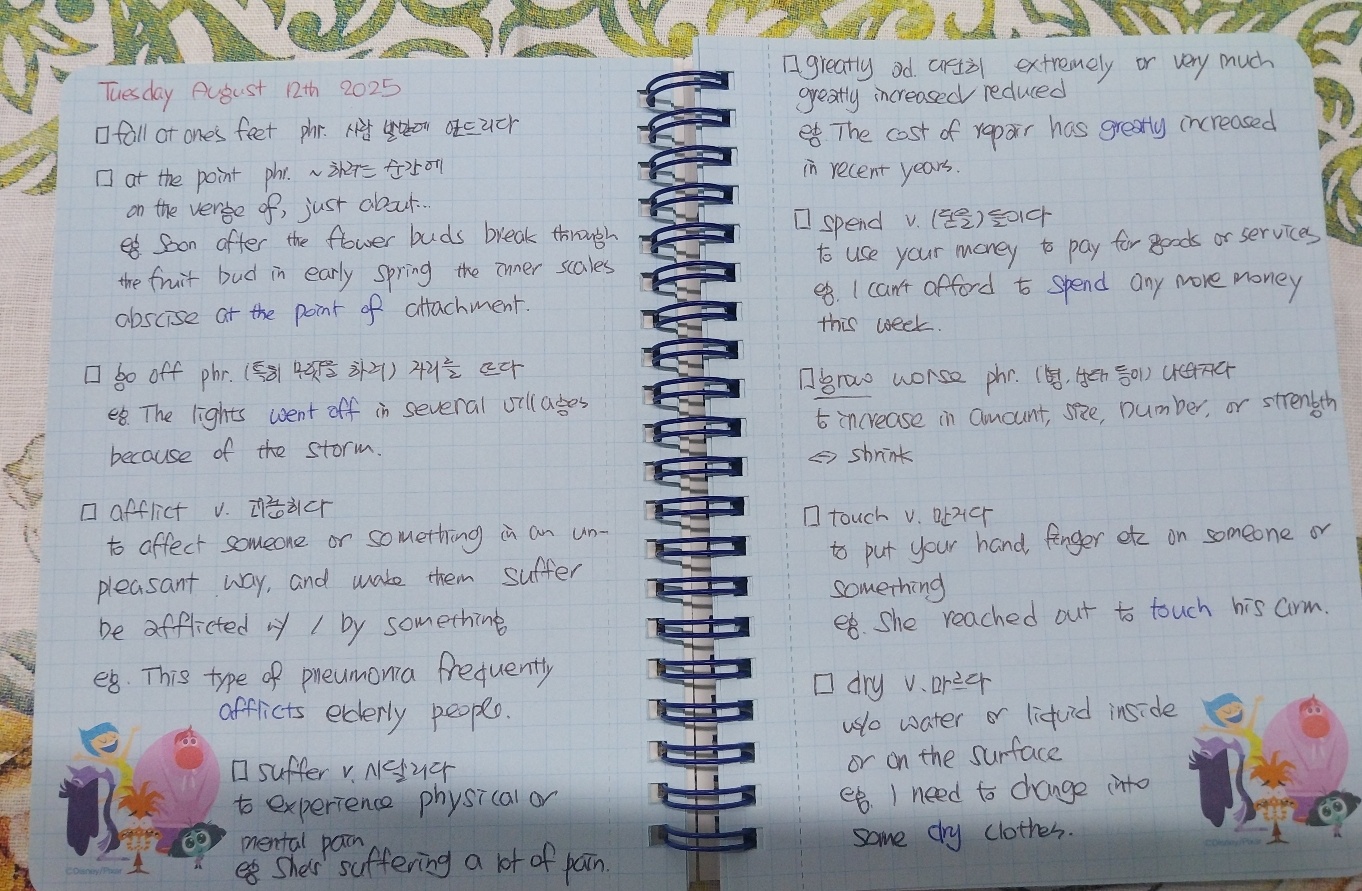 Tuesday August 12th 2025
□ fall at one's feet phr. 사람 발밑에 엎드리다
□ at the point phr. ~ 하려는 순간에
on the verge of, just about...
eg. Soon after the flower buds break through
the fruit bud in early spring the inner scales
abscise at the point of attachment.
□ go off phr. (특히 무엇을 하러) 자리를 뜨다
eg. The lights went off in several villages
because of the storm.
□ afflict v. 괴롭히다
to affect someone or something in an un-
pleasant way, and make them suffer
be afflicted w/ / by something
eg. This type of pneumonia frequently
afflicts elderly people.
□ suffer v. 시달리다
to experience physical or
mental pain
eg. She's suffering a lot of pain.
©Disney/Pixar
□ greatly ad. 대단히 extremely or very much
greatly increased/reduced
eg. The cost of repair has greatly increased
in recent years.
□ spend v. (돈을) 들이다
to use your money to pay for goods or services
eg. I can't afford to spend any more money
this week.
□ grow worse phr. (병, 상태 등이) 나빠지다
to increase in amount, size, number, or strength
⇔ shrink
□ touch v. 만지다
to put your hand, finger etc on someone or
something
eg. She reached out to touch his arm.
□ dry v. 마르다
w/o water or liquid inside
or on the surface
eg. I need to change into
some dry clothes.
©Disney/Pixar